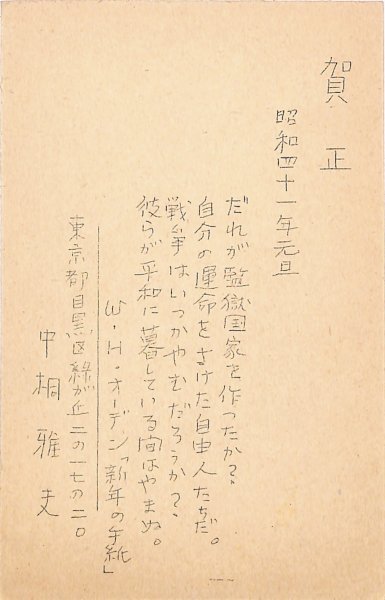 賀正
昭和四十一年元旦
だれが監獄国家を作ったか?、
自分の運命をさけた自由人たちだ。
戦争はいつかやむだろうか?、
彼らが平和に暮している間はやまぬ。
W・H・オーデン「新年の手紙」
東京都目黒区緑が丘二の一七の二〇
中桐雅夫